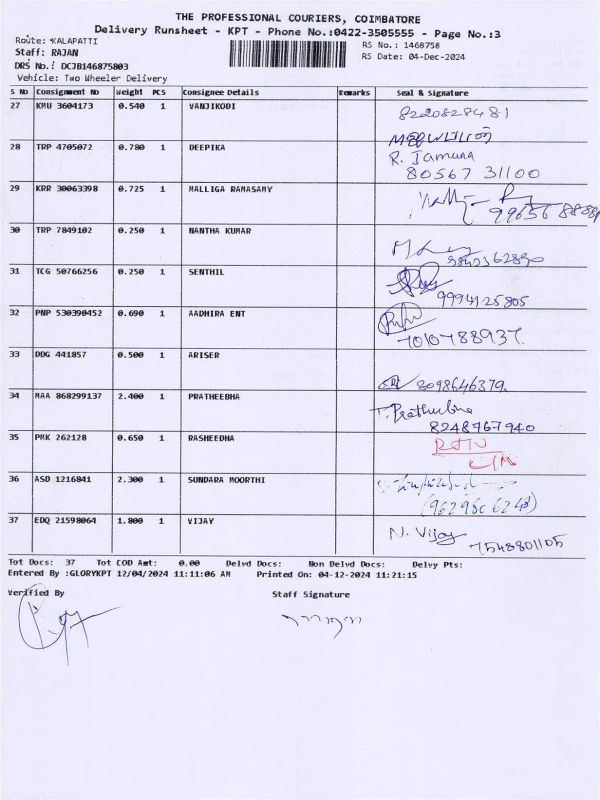 THE PROFESSIONAL COURIERS, COIMBATORE
Delivery Runsheet - KPT - Phone No.:0422-3505555 - Page No.:3
Route: KALAPATTI
RS No.: 1468758
Staff: RAJAN
RS Date: 04-Dec-2024
DRS No.: DCJB146875803
Vehicle: Two Wheeler Delivery
S No Consignment No Weight PCS Consignee Details Remarks Seal & Signature
27 KMU 3604173 0.540 1 VANJIKODI 8220828481
28 TRP 4705072 0.780 1 DEEPIKA
R. Jamuna
80567 31100
29 KRR 30063398 0.725 1 MALLIGA RAMASAMY
30 TRP 7849102 0.250 1 NANTHA KUMAR
31 TCG 50766256 0.250 1 SENTHIL
9994125805
32 PNP 530390452 0.690 1 AADHIRA ENT
7010788937.
33 DDG 441857 0.500 1 ARISER
8098646379.
34 MAA 868299137 2.400 1 PRATHEEBHA
8248767940
35 PMK 262128 0.650 1 RASHEEDHA
36 ASD 1216841 2.300 1 SUNDARA MOORTHI
37 EDQ 21598064 1.800 1 VIJAY N. Vijay
7548801105
Tot Docs: 37 Tot COD Amt: 0.00 Delvd Docs: Non Delvd Docs: Delvy Pts:
Entered By :GLORYKPT 12/04/2024 11:11:06 AM Printed On: 04-12-2024 11:21:15
Verified By Staff Signature